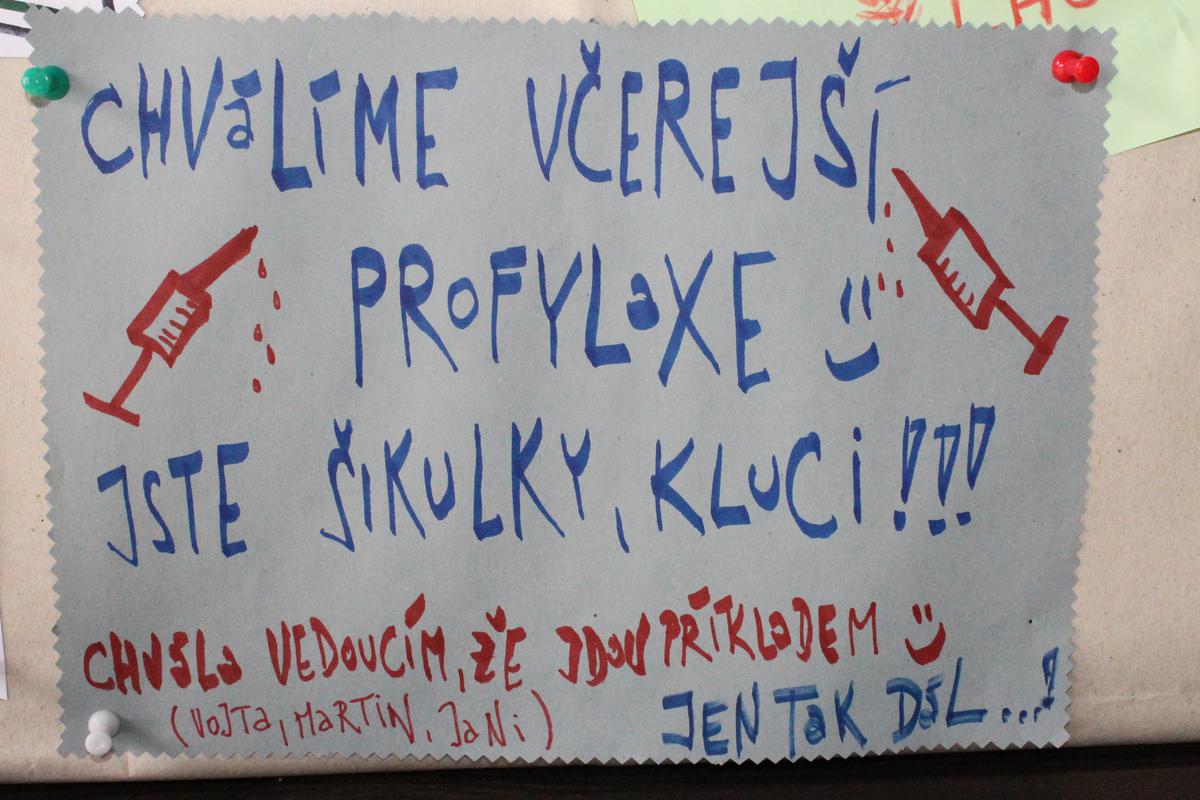 CHVáLÍME VČEREJŠÍ
PROFYLaXE
JSTE ŠIKULKY, KLUCi!!!
CHVáLa VEDOUCÍM, ŽE JDOU PŘÍKLaDEM
(VOJTa, MaRTiN, JaNi)
JEN TaK DáL...!